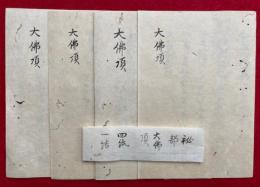 大佛頂
大佛頂
大佛頂
大佛頂
秘部
大佛頂
四紙
一結